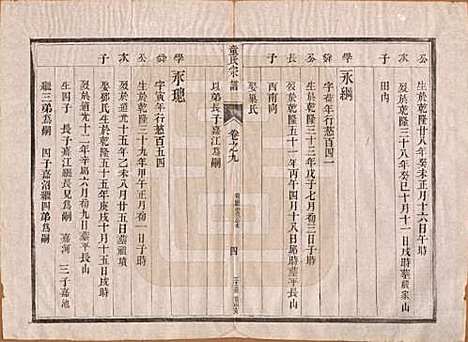 公 生於乾隆廿八年癸未正月十六日午時
歿於乾隆三十八年癸巳十月十一日戌時墓嚴家山
子 田內
學 永綱
舜 字 年行慈百四一
公 生於乾隆三十三年戊子七月初六日子時
次 歿於乾隆五十一年
子 西南向
娶巢氏
以弟長子嘉江為嗣
童氏宗譜
卷之九
四
學 永璁
舜 字寅年行慈百五四
公 生於乾隆三十九年甲午正月初一日子時
歿於道光十五年乙未八月廿五日子時墓
次 娶鄧氏生於乾隆五十五年庚戌十月十五日戌時
子 歿於道光十二年 六月初九日墓平長山
生四子 長子嘉江繼長兄為嗣 嘉河 三子嘉池
繼三弟為嗣 四子嘉沼繼四弟為嗣